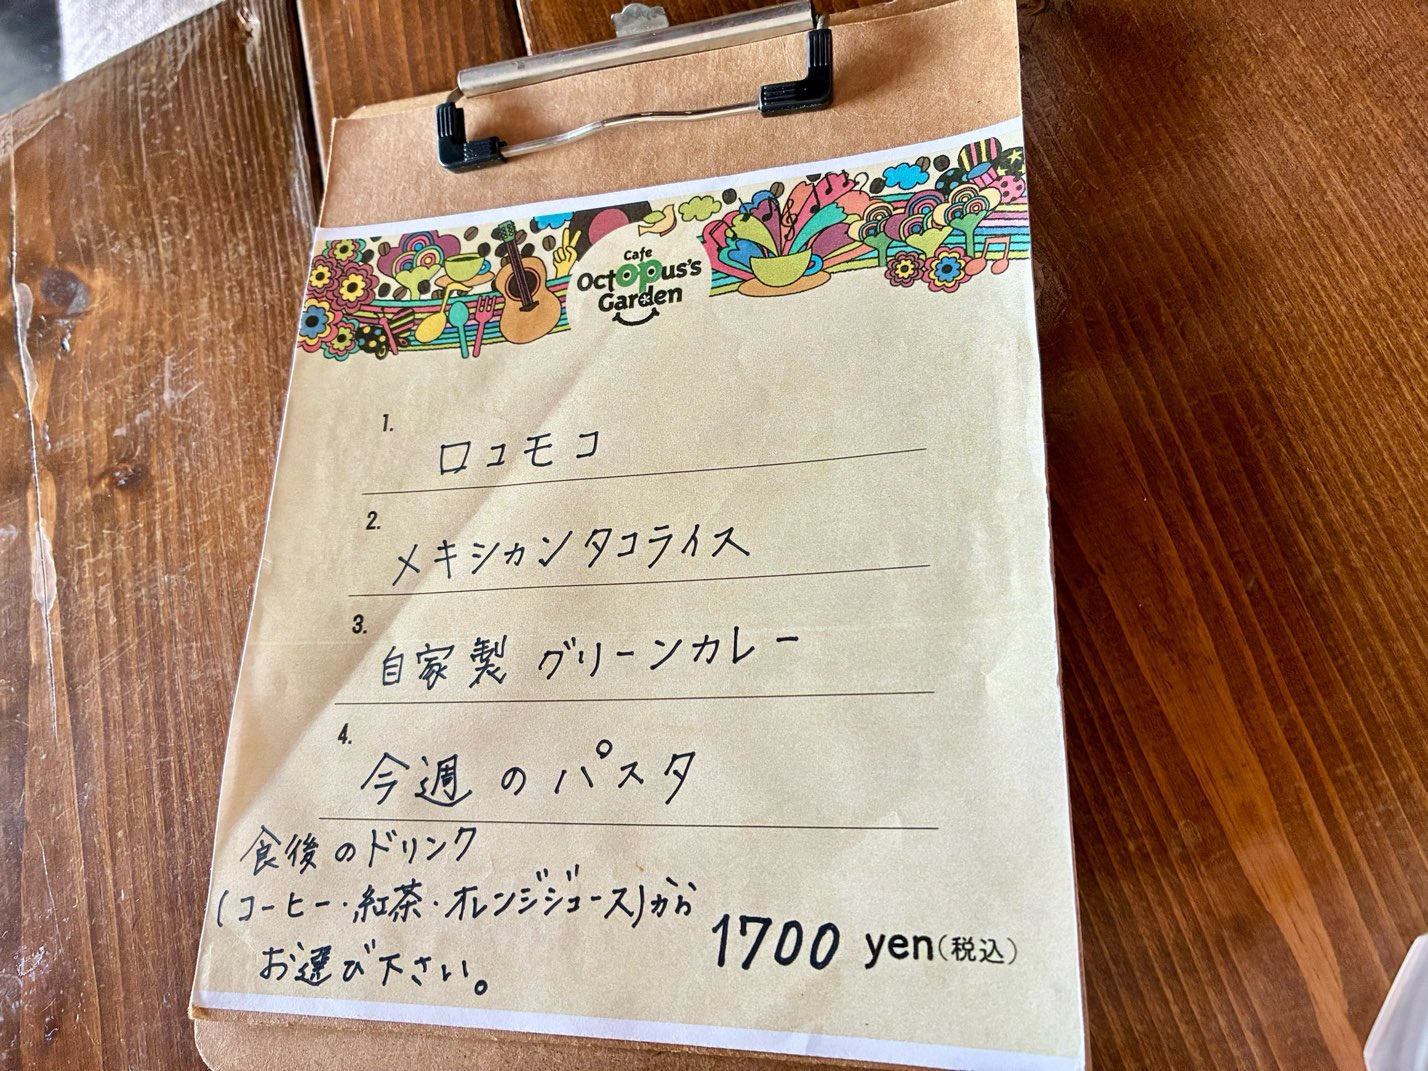 Cafe
Octopus's
Garden
1.
ロコモコ
2.
メキシカンタコライス
3.
自家製 グリーンカレー
4.
今週のパスタ
食後のドリンク
(コーヒー・紅茶・オレンジジュース)から
お選び下さい。
1700 yen(税込)